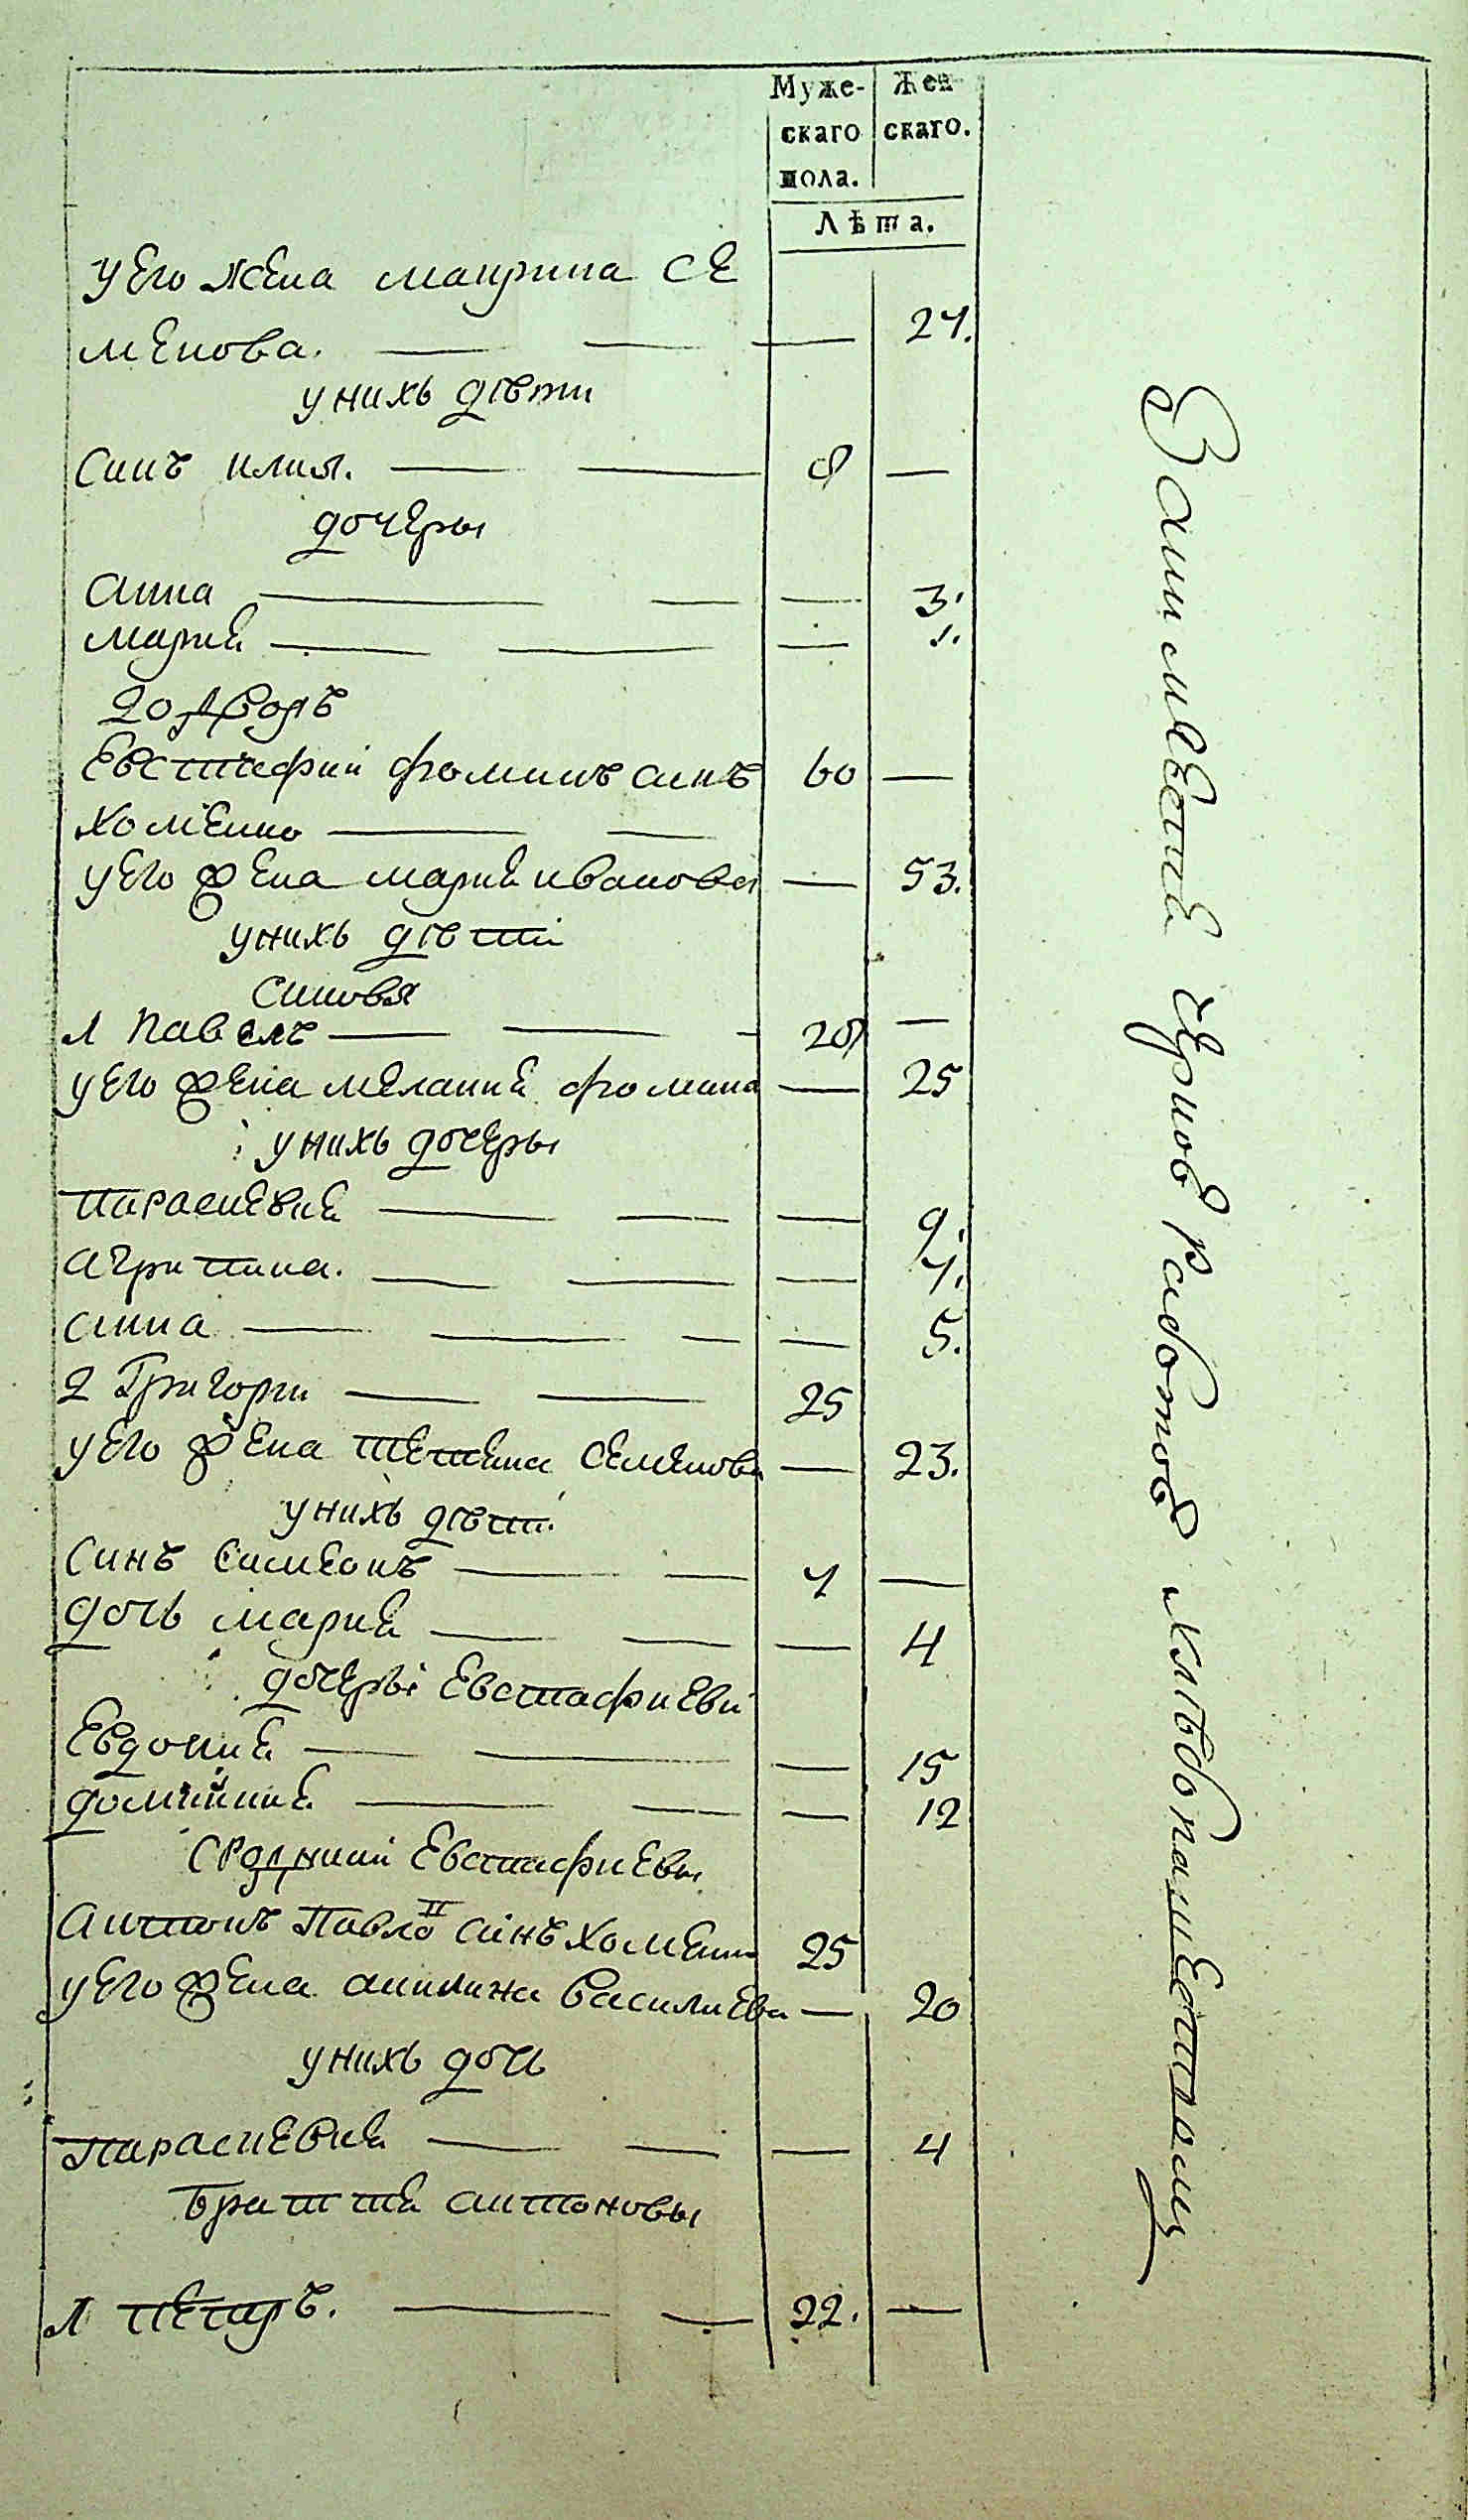 Муже- Жен-
скаго скаго.
пола.
Лѣта.
у его жена маирина се
менова. — — — 24.
у нихъ дѣти
синъ илия. — — 8 —
дочеры
анна — — — 3.
мария — — — 1.
20 дворъ
Евстафий фоминъ синъ 60 —
хоменко — —
у его жена мария иванова — 53.
у нихъ дѣти
синовя
1 павелъ — — - 28 —
у его жена мелания фомина — 25
у нихъ дочеры
параскевия — — — 9.
агрипина. — — — 7.
анна — — — — 5.
2 Григори — — 25
у его жена Семенова — 23.
у нихъ дѣти.
синъ симеонъ — — 7 —
дочь мария — — — 4
дочеры Евстафиеви
Евдокия — — — 15
домникия — — — 12
сродники Евстафиевы
антонъ Павлов синъ хоменко 25
у его жена акилина василиева — 20
у нихъ дочь
параскевия — — — 4
братия антоновы
1 петръ. — — 22. —
Занимается черной работой хлебопашеством